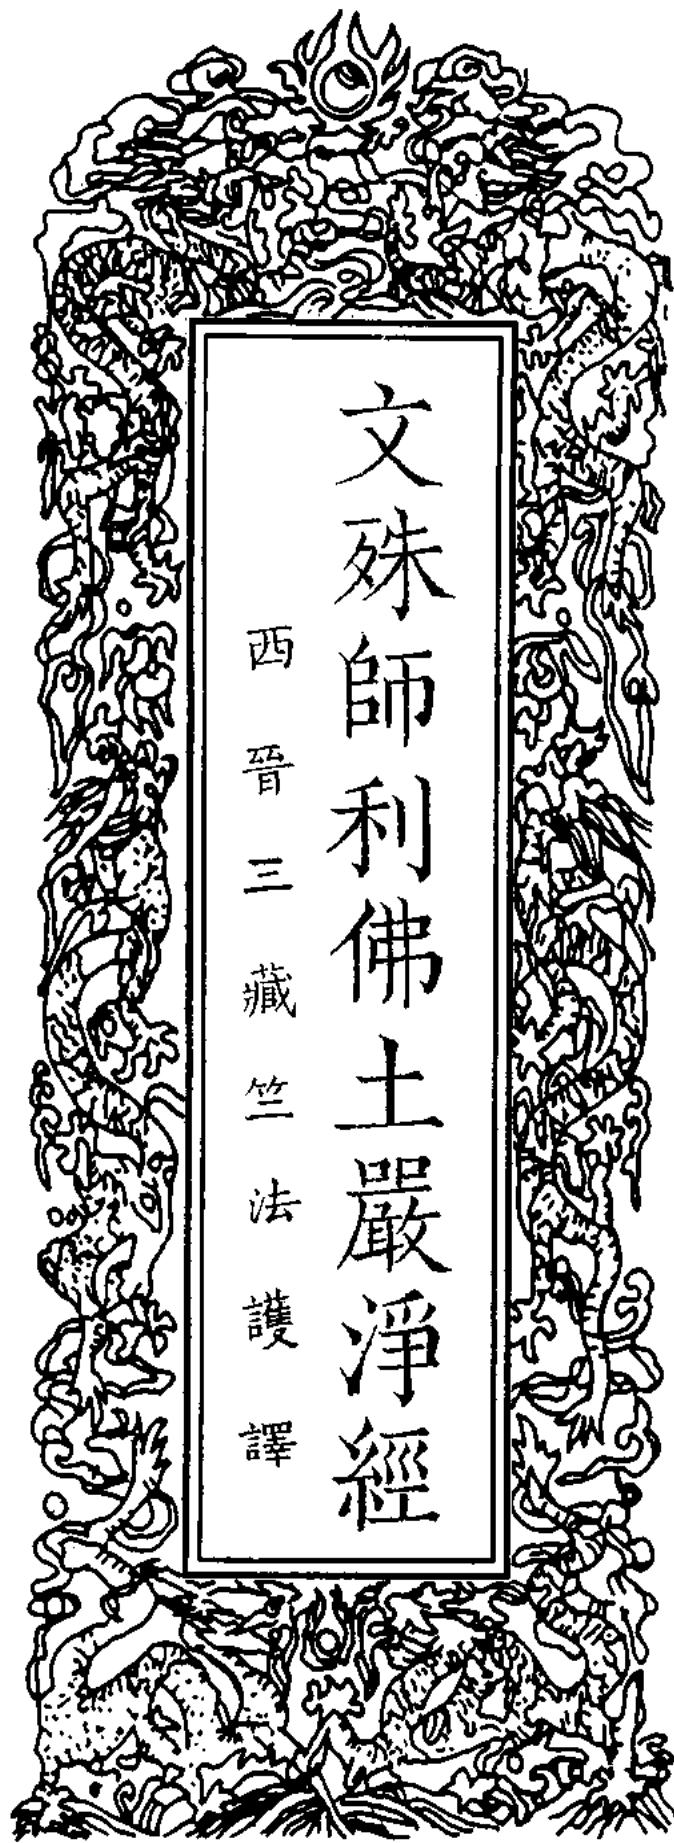 文殊師利佛土嚴淨經
西晉三藏竺法護譯